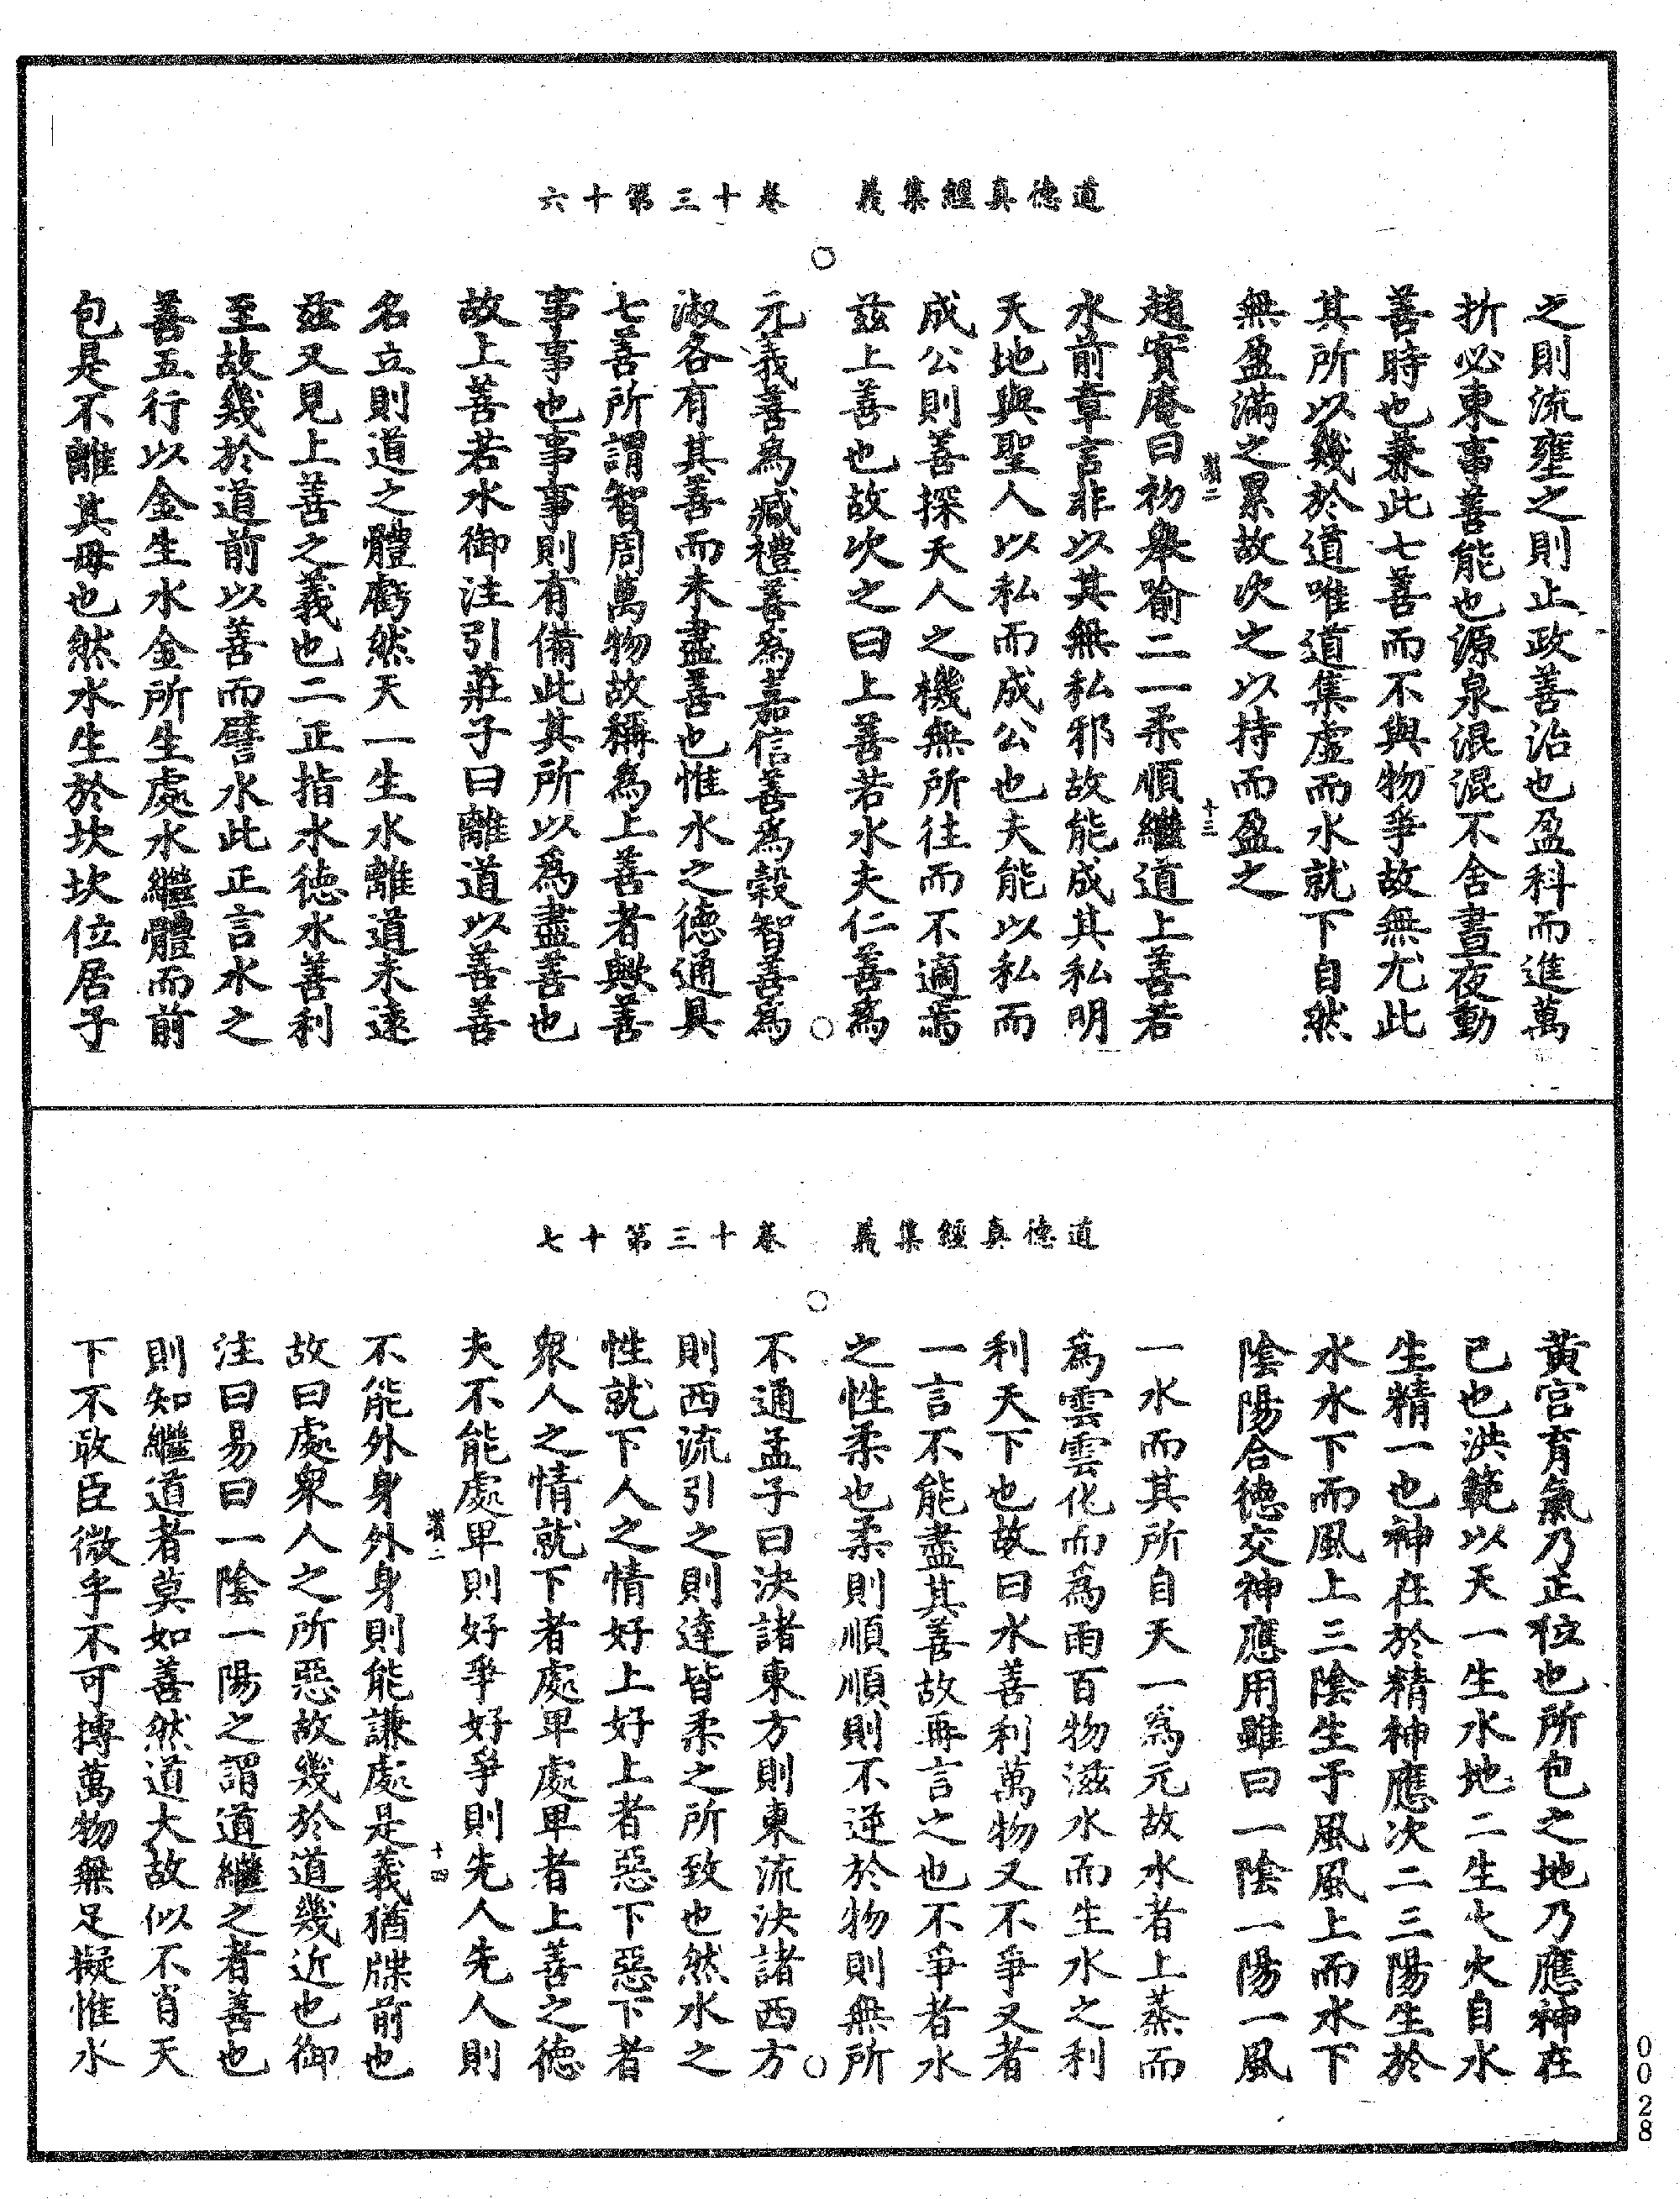 道德真經集義　卷十三第十六
之則流壅之則止政善治也盈科而進萬
折必東事善能也源泉混混不舍晝夜動
善時也兼此七善而不與物爭故無尤此
其所以幾於道唯道集虛而水就下自然
無盈滿之累故次之以持而盈之
十三
趙實庵曰初舉喻二一柔順繼道上善若
水前章言非以其無私邪故能成其私明
天地與聖人以私而成公也夫能以私而
成公則善探天人之機無所往而不適焉
茲上善也故次之曰上善若水夫仁善為
元義善為臧禮善為嘉信善為穀智善為
淑各有其善而未盡善也惟水之德通具
七善所謂智周萬物故稱為上善者歟善
事事也事事則有備此其所以為盡善也
故上善若水御注引莊子曰離道以善善
名立則道之體虧然天一生水離道未遠
茲又見上善之義也二正指水德水善利
至故幾於道前以善而譬水此正言水之
善五行以金生水金所生處水繼體而前
包是不離其母也然水生於坎坎位居子
道德真經集義　卷十三第十七
黃宮育氣乃正位也所包之地乃應神在
己也洪範以天一生水地二生火火自水
生精一也神在於精神應次二三陽生於
水水下而風上三陰生于風風上而水下
陰陽合德交神應用雖曰一陰一陽一風
一水而其所自天一為元故水者上蒸而
為雲雲化而為雨百物滋水而生水之利
利天下也故曰水善利萬物又不爭又者
一言不能盡其善故再言之也不爭者水
之性柔也柔則順順則不逆於物則無所
不通孟子曰決諸東方則東流決諸西方
則西流引之則達皆柔之所致也然水之
性就下人之情好上好上者惡下惡下者
眾人之情就下者處卑處卑者上善之德
夫不能處卑則好爭好爭則先人先人則
十四
不能外身外身則能謙處是義猶牒前也
故曰處眾人之所惡故幾於道幾近也御
注曰易曰一陰一陽之謂道繼之者善也
則知繼道者莫如善然道大故似不肖天
下不敢臣微乎不可摶萬物無足擬惟水
0028